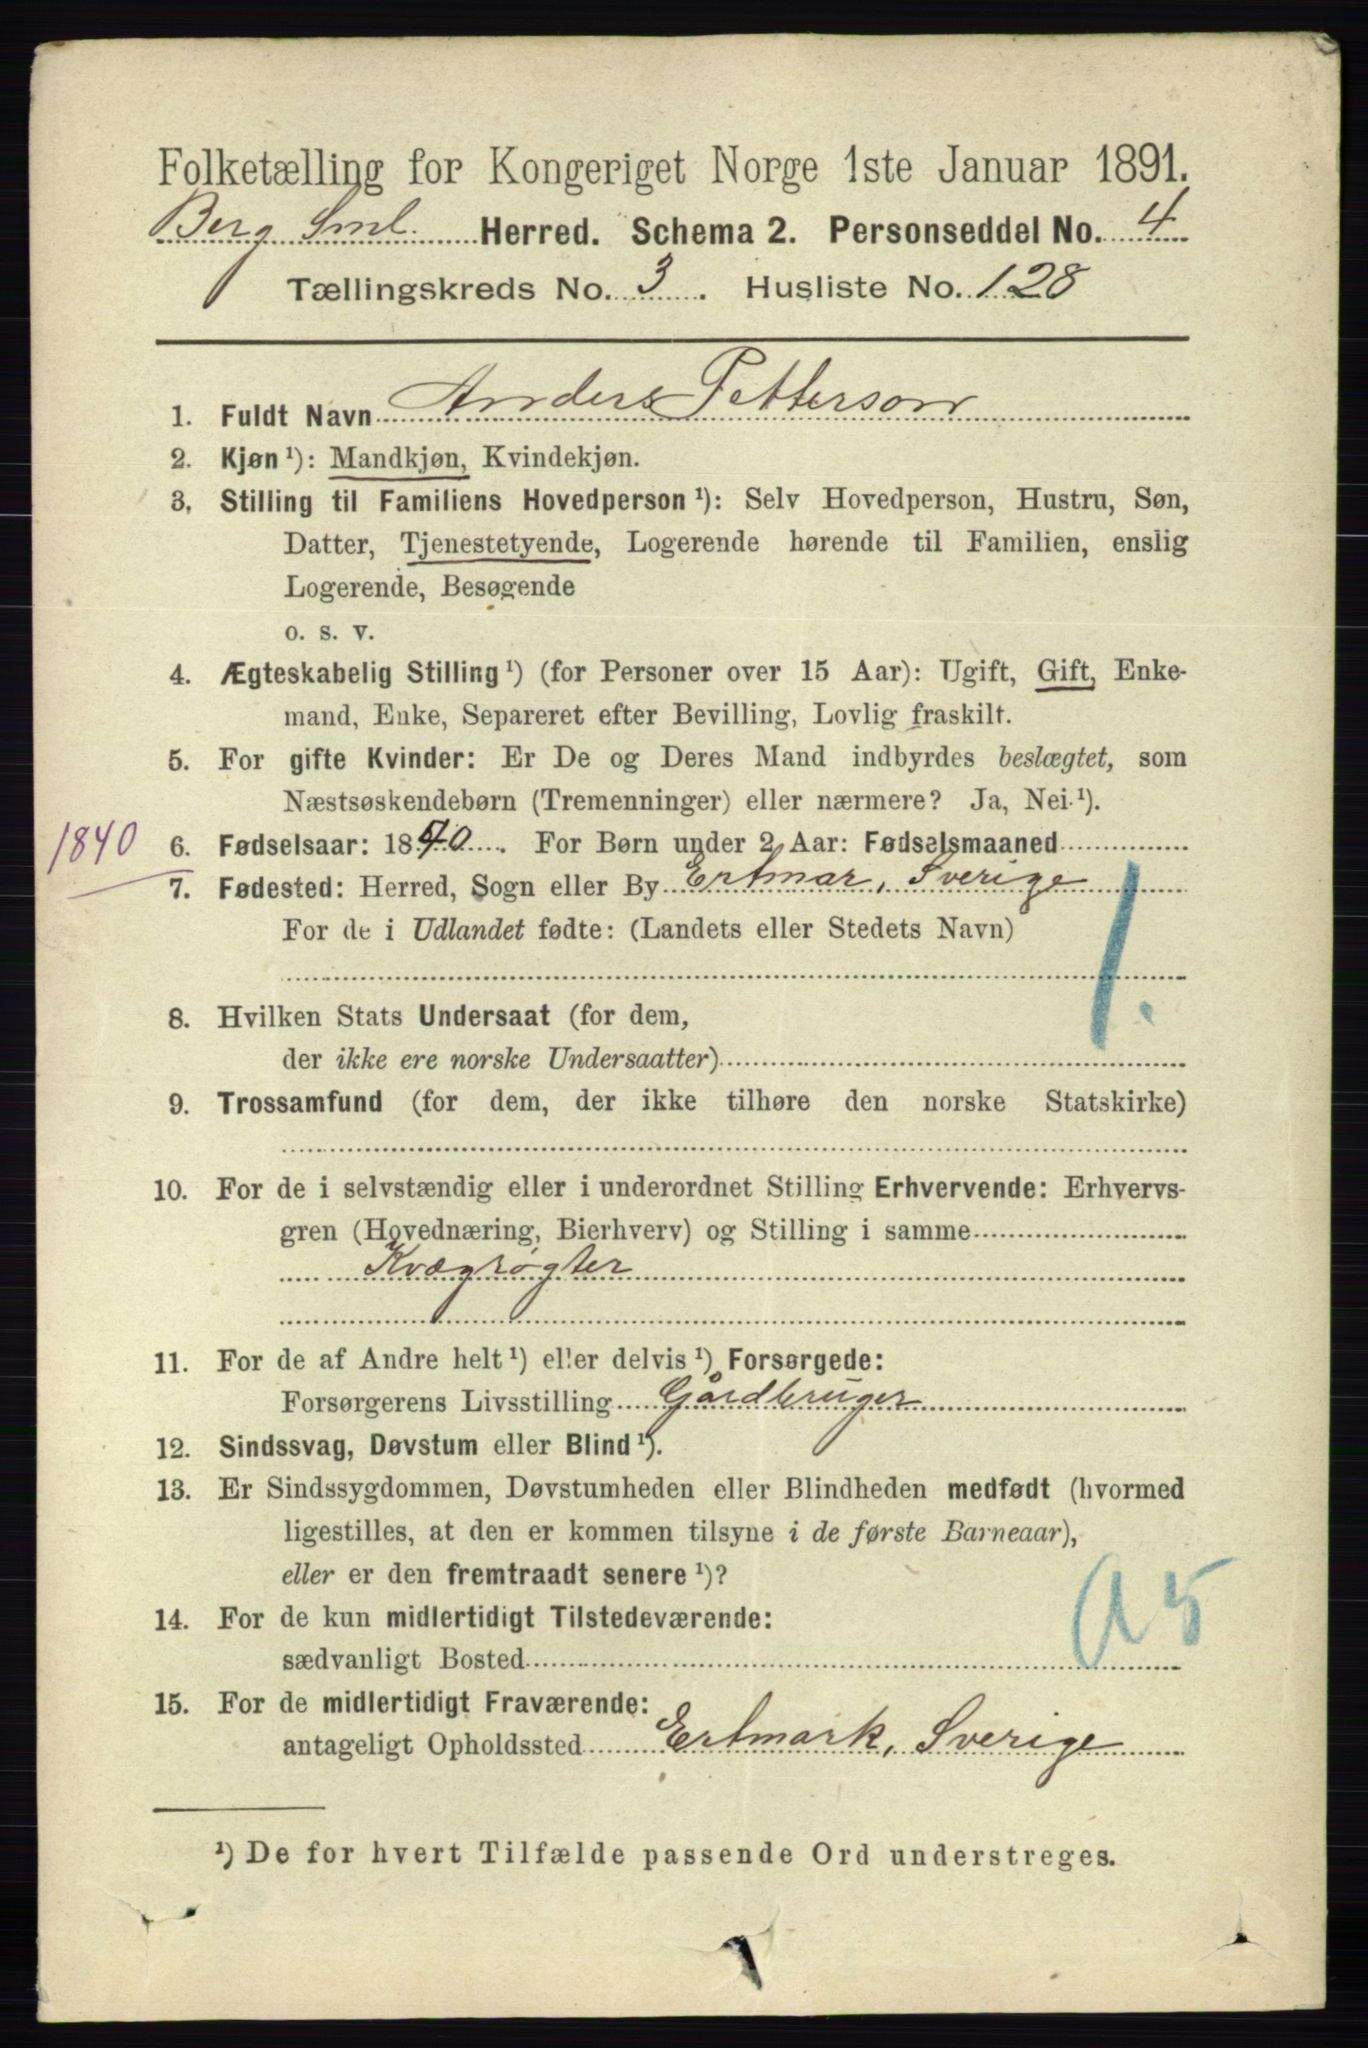 Folketælling for Kongeriget Norge 1ste Januar 1891.
Berg Sml. Herred. Schema 2. Personseddel No. 4
Tællingskreds No. 3. Husliste No. 128
1. Fuldt Navn Anders Petterson
2. Kjøn ¹): Mandkjøn, Kvindekjøn.
3. Stilling til Familiens Hovedperson ¹): Selv Hovedperson, Hustru, Søn,
Datter, Tjenestetyende, Logerende hørende til Familien, enslig
Logerende, Besøgende
o. s. v.
4. Ægteskabelig Stilling ¹) (for Personer over 15 Aar): Ugift, Gift, Enke-
mand, Enke, Separeret efter Bevilling, Lovlig fraskilt.
5. For gifte Kvinder: Er De og Deres Mand indbyrdes beslægtet, som
Næstsøskendebørn (Tremenninger) eller nærmere? Ja, Nei ¹).
1840 6. Fødselsaar: 1840. For Børn under 2 Aar: Fødselsmaaned
7. Fødested: Herred, Sogn eller By Ertmar, Sverige
For de i Udlandet fødte: (Landets eller Stedets Navn)
1.
8. Hvilken Stats Undersaat (for dem,
der ikke ere norske Undersaatter)
9. Trossamfund (for dem, der ikke tilhøre den norske Statskirke)
10. For de i selvstændig eller i underordnet Stilling Erhvervende: Erhvervs-
gren (Hovednæring, Bierhverv) og Stilling i samme
Kvægrøgter
11. For de af Andre helt ¹) eller delvis ¹) Forsørgede:
Forsørgerens Livsstilling Gårdbruger
12. Sindssvag, Døvstum eller Blind ¹).
13. Er Sindssygdommen, Døvstumheden eller Blindheden medfødt (hvormed
ligestilles, at den er kommen tilsyne i de første Barneaar),
eller er den fremtraadt senere ¹)?
14. For de kun midlertidigt Tilstedeværende:
sædvanligt Bosted
a 5
15. For de midlertidigt Fraværende:
antageligt Opholdssted Ertmark, Sverige
¹) De for hvert Tilfælde passende Ord understreges.